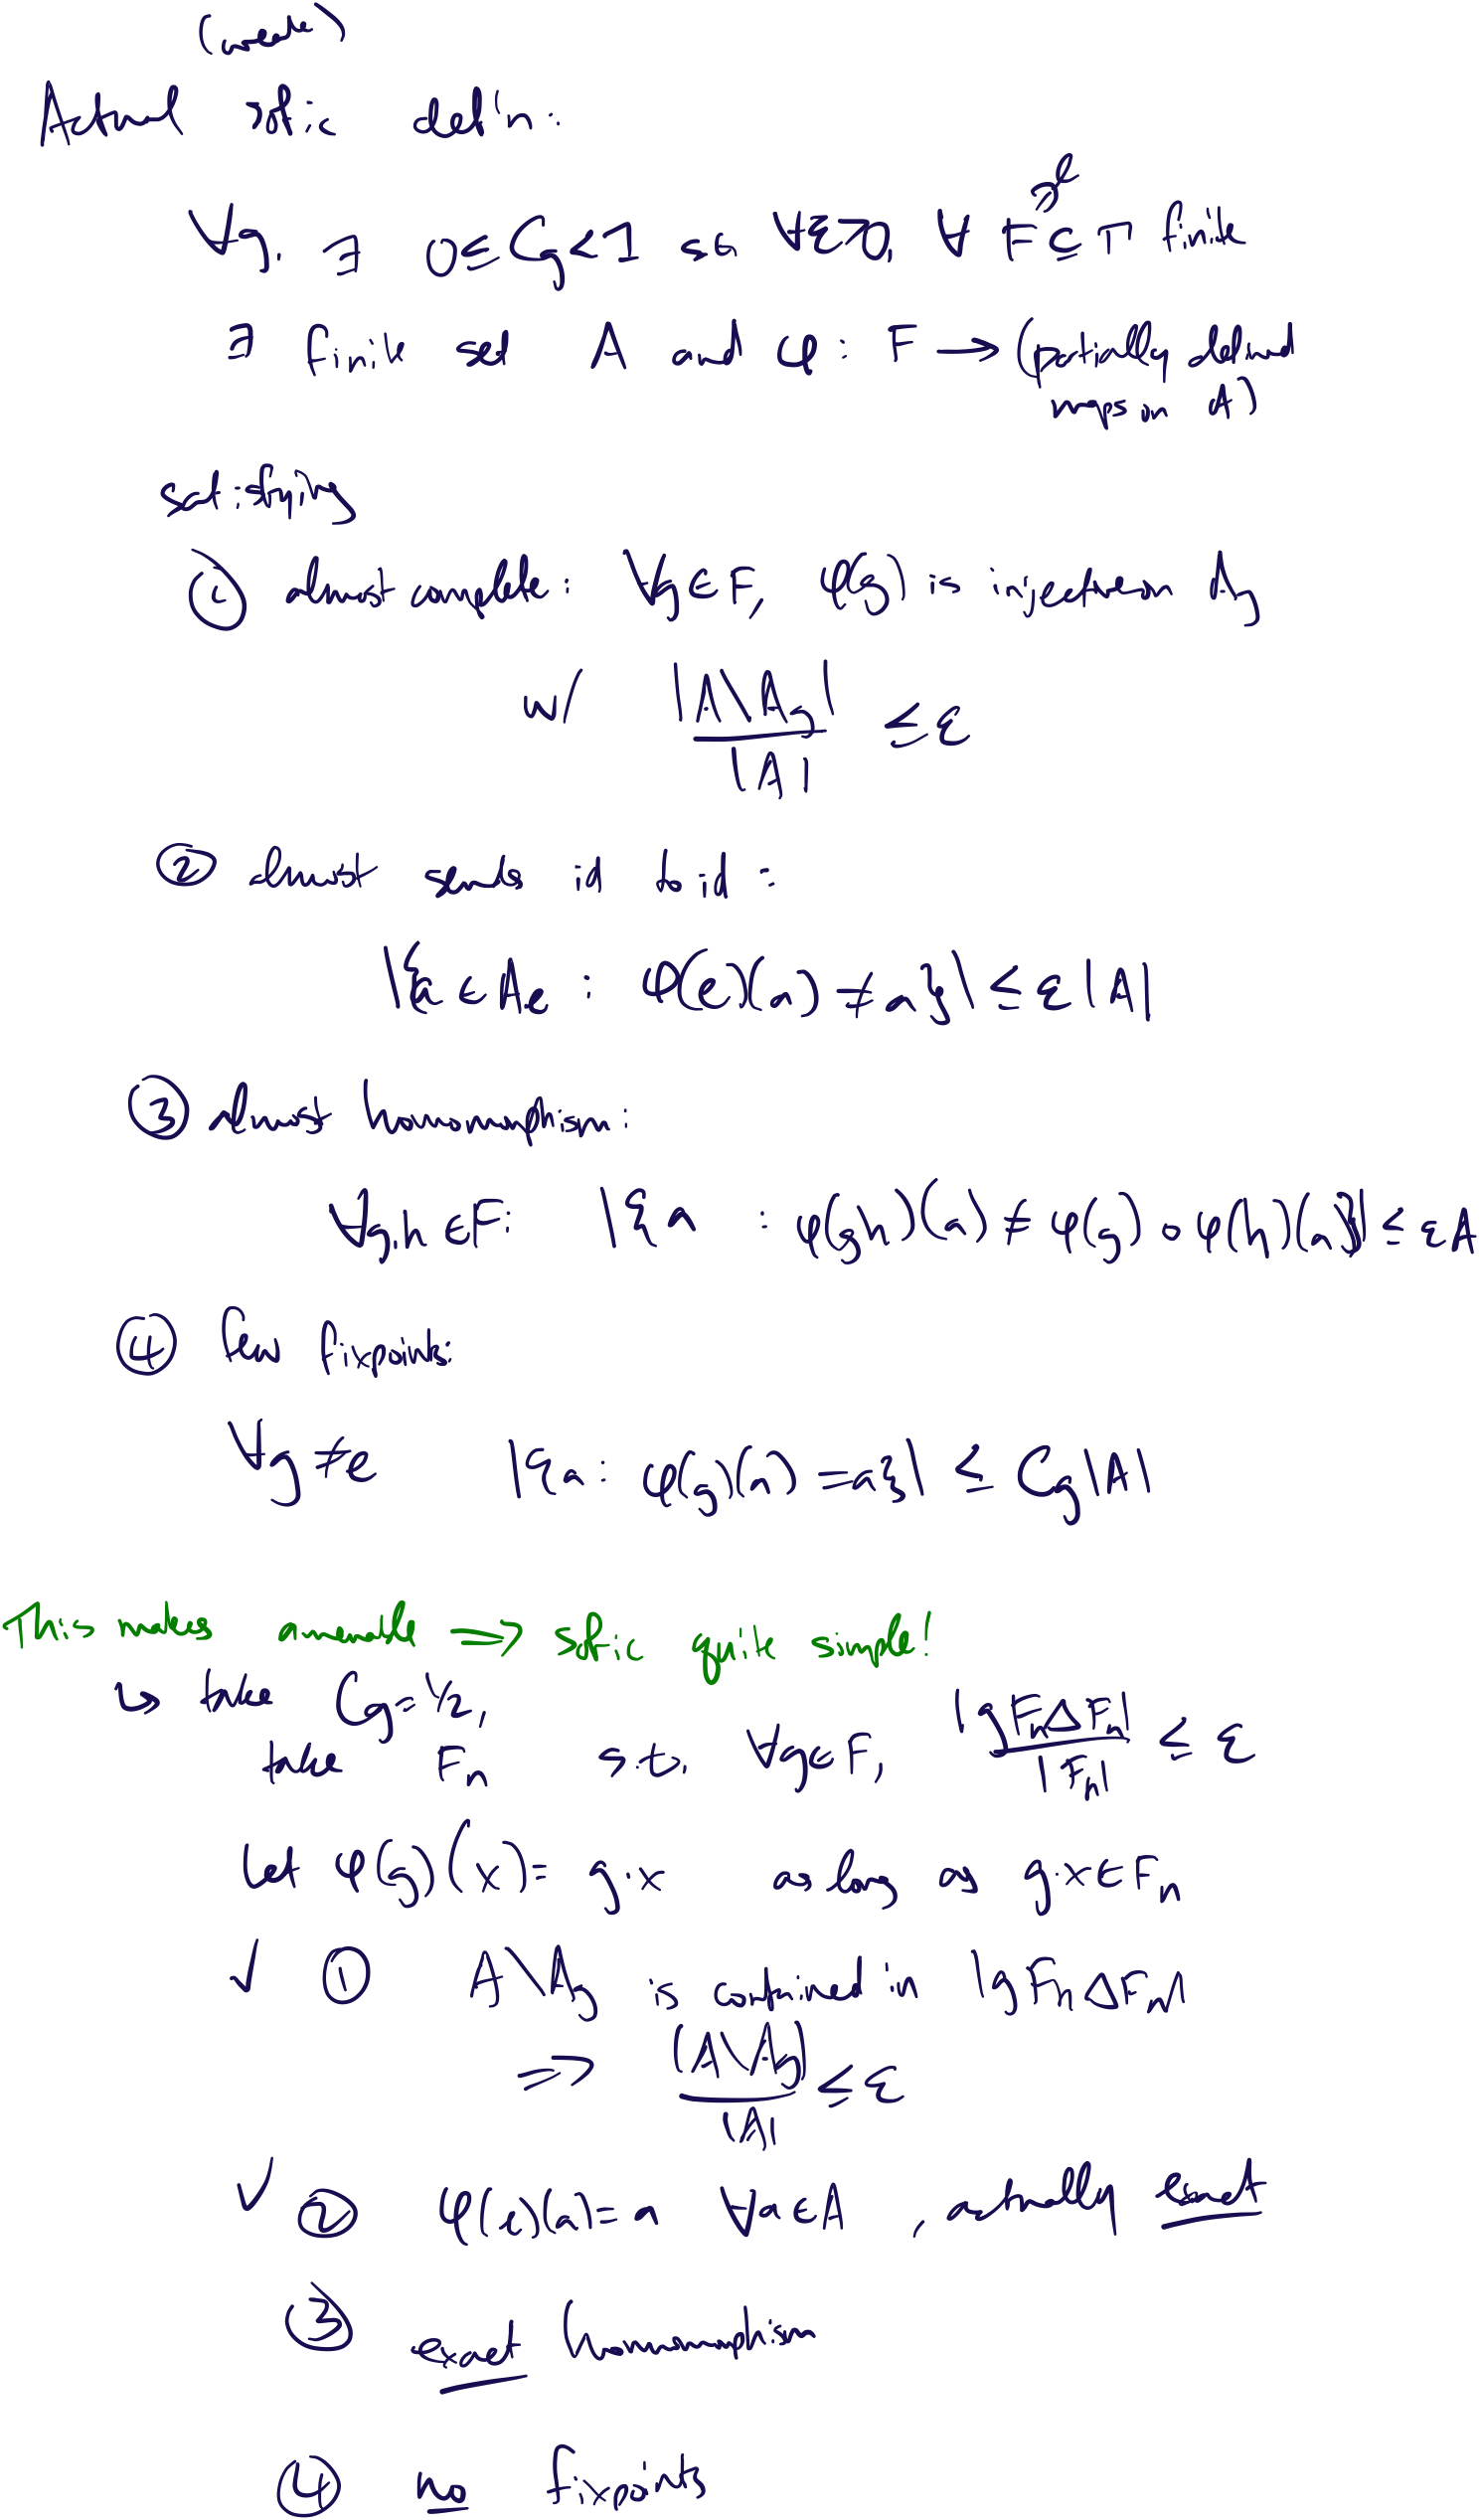 (weak)
Actual sofic def'n:
∀g, ∃ 0≤C_g<1 so ∀ε>0, ∀ F ⊆ Γ finite
∃ finite set A and φ: F → (partially defined
maps on A)
satisfying
① almost complete: ∀g∈F, φ(g) is injection on A_g
w/ |A\A_g| / |A| ≤ε
② almost sends id to id:
|{a ∈ A_e : φ(e)(a) ≠ a}| ≤ ε|A|
③ almost homomorphism:
∀g,h ∈F: |{a : φ(gh)(a) ≠ φ(g) ∘ φ(h)(a)}| ≤ εA
④ few fixpoints:
∀g≠e |{a : φ(g)(a) = a}| ≤ C_g|A|
This makes amenable ⟹ sofic quite simple!
↳ take C_g = 1/2,
take F_n s.t. ∀g∈F, |gF_nΔF_n| / |F_n| ≤ ε
let φ(g)(x) = g·x as long as g·x∈F_n
✓ ① A\A_g is contained in |gF_nΔF_n|
⟹ |A\A_g| / |A| ≤ ε
✓ ② φ(e)(a)=a ∀a∈A, actually exact
③ exact homomorphism
④ no fixpoints